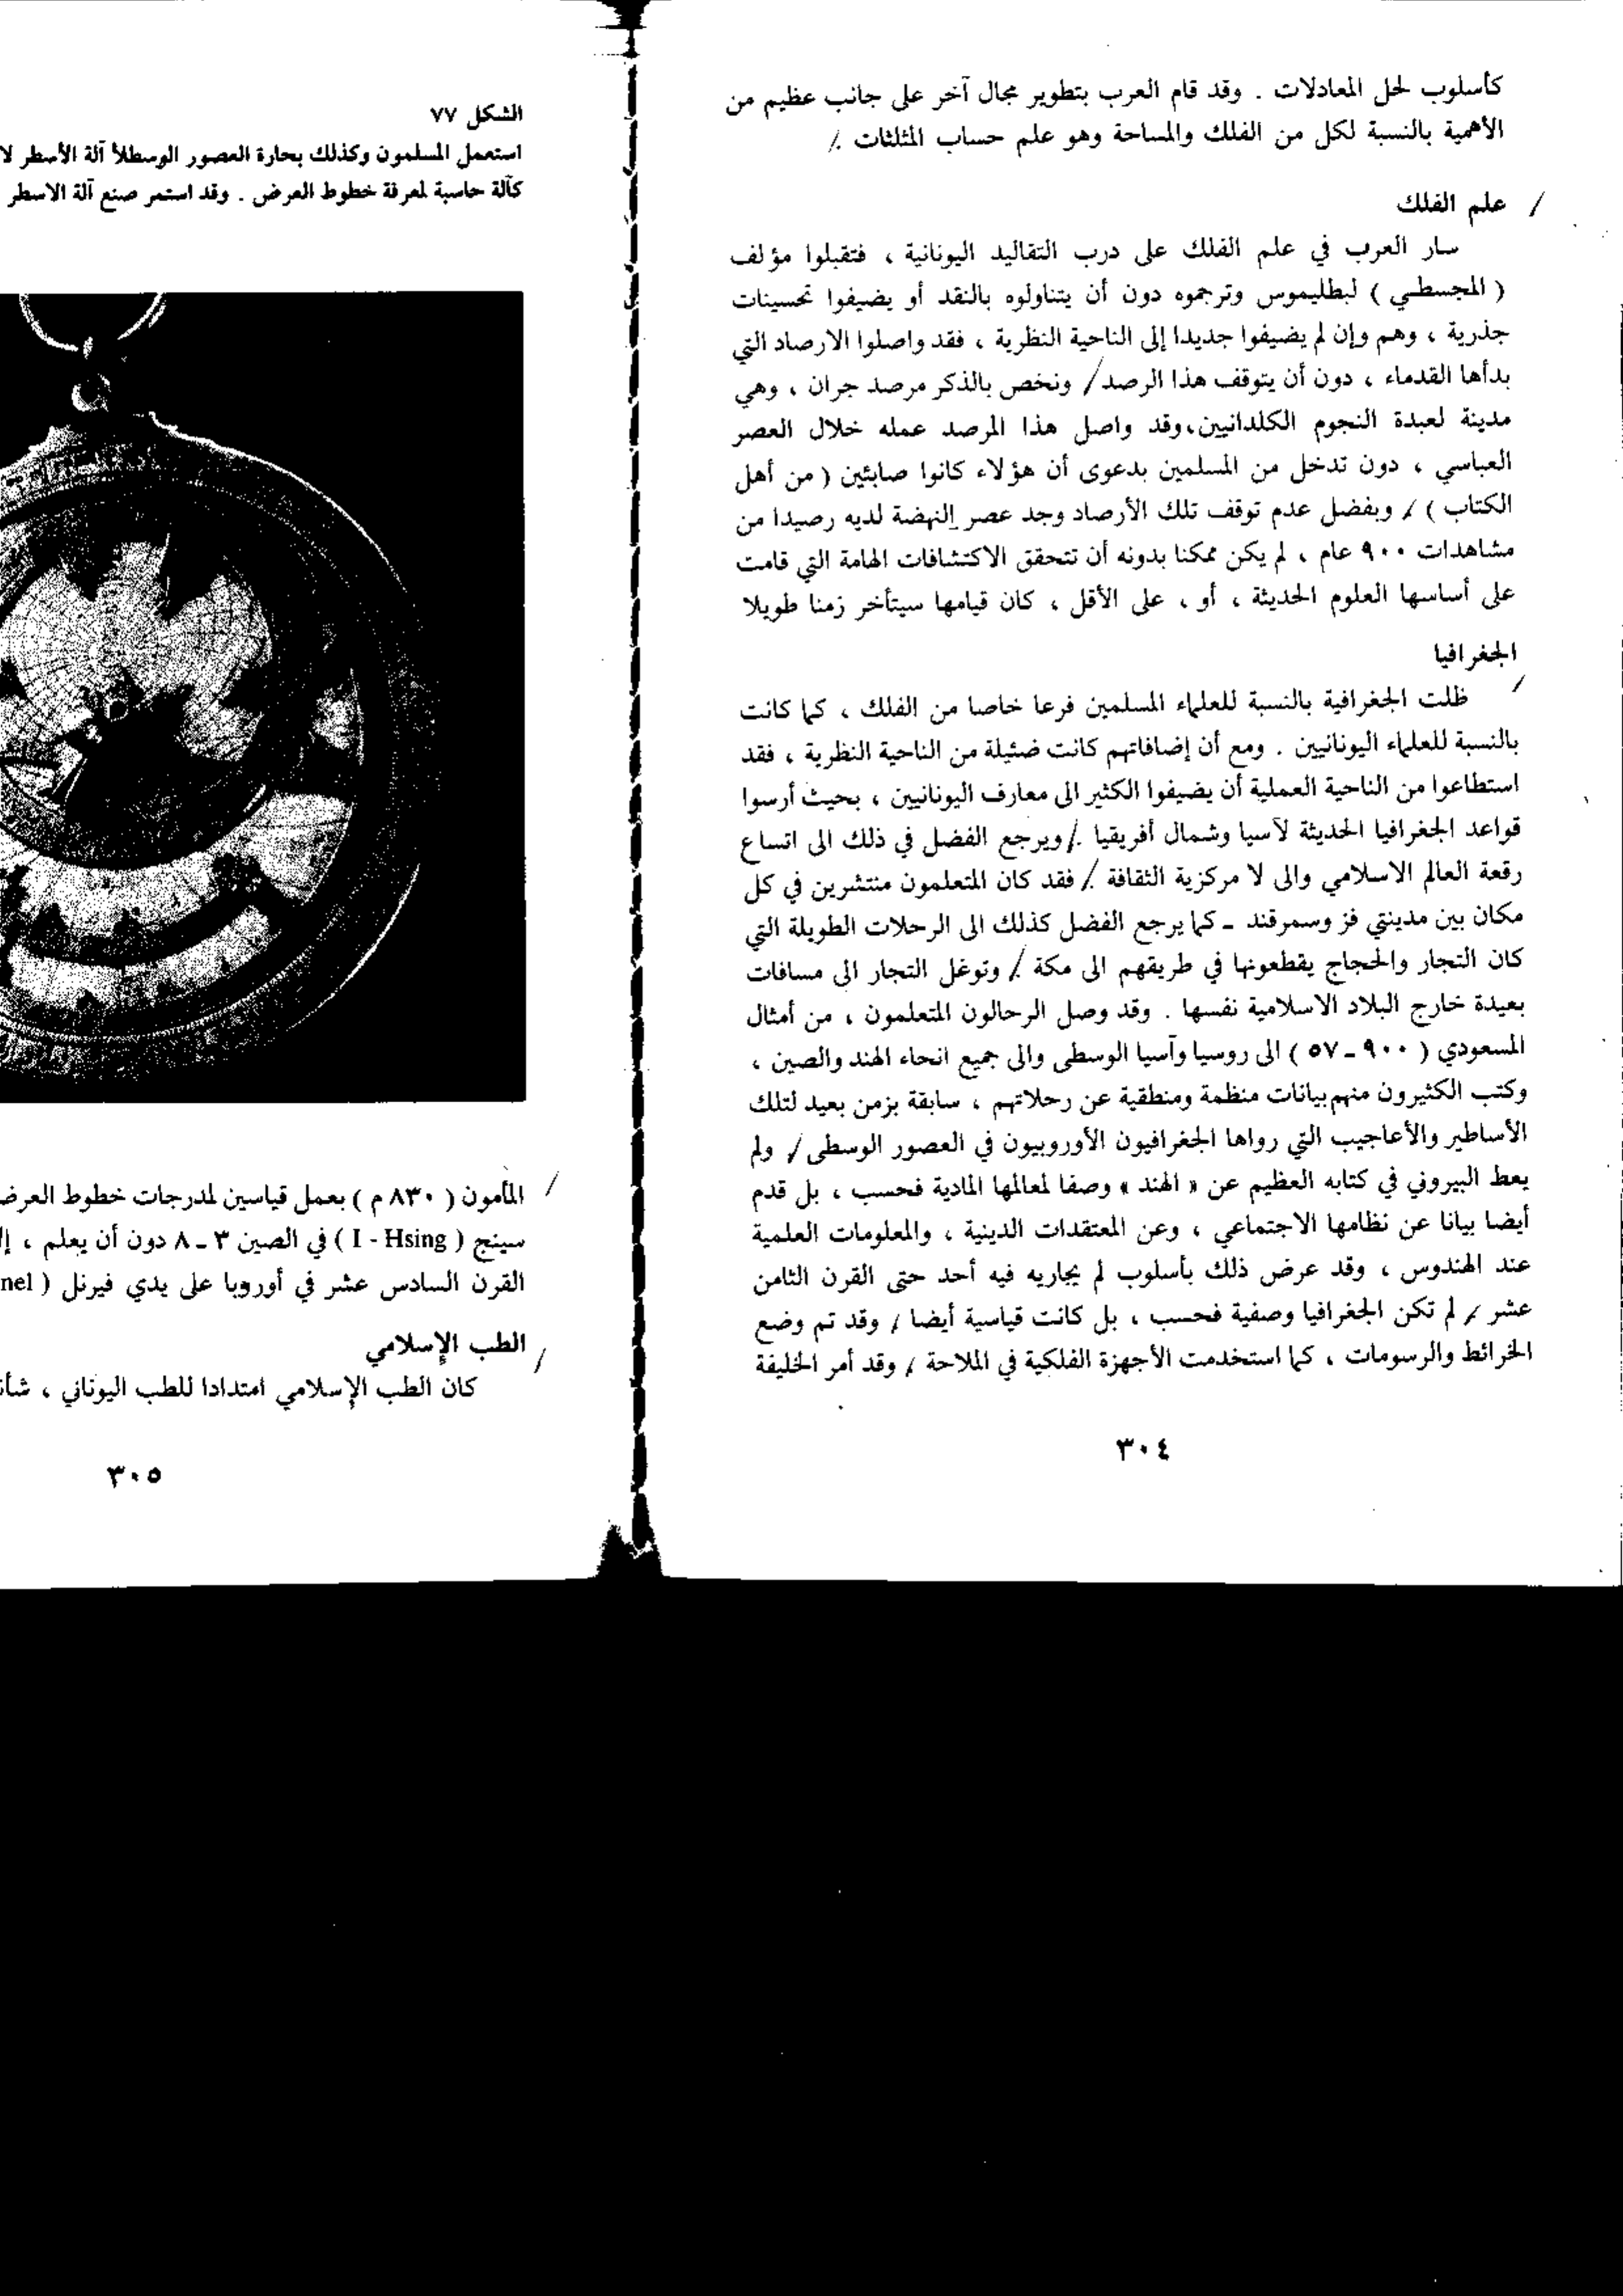 كأسلوب لحل المعادلات . وقد قام العرب بتطوير مجال آخر على جانب عظيم من
الأهمية بالنسبة لكل من الفلك والمساحة وهو علم حساب المثلثات .
علم الفلك
سار العرب في علم الفلك على درب التقاليد اليونانية ، فتقبلوا مؤلف
( المجسطي ) لبطليموس وترجموه دون أن يتناولوه بالنقد أو يضيفوا تحسينات
جذرية ، وهم وإن لم يضيفوا جديدا إلى الناحية النظرية ، فقد واصلوا الارصاد التي
بدأها القدماء ، دون أن يتوقف هذا الرصد / ونخص بالذكر مرصد جران ، وهي
مدينة لعبدة النجوم الكلدانيين،وقد واصل هذا المرصد عمله خلال العصر
العباسي ، دون تدخل من المسلمين بدعوى أن هؤلاء كانوا صابئين ( من أهل
الكتاب ) / وبفضل عدم توقف تلك الأرصاد وجد عصر النهضة لديه رصيدا من
مشاهدات ٩٠٠ عام ، لم يكن ممكنا بدونه أن تتحقق الاكتشافات الهامة التي قامت
على أساسها العلوم الحديثة ، أو ، على الأقل ، كان قيامها سيتأخر زمنا طويلا
الجغرافيا
ظلت الجغرافية بالنسبة للعلماء المسلمين فرعا خاصا من الفلك ، كما كانت
بالنسبة للعلماء اليونانيين . ومع أن إضافاتهم كانت ضئيلة من الناحية النظرية ، فقد
استطاعوا من الناحية العملية أن يضيفوا الكثير الى معارف اليونانيين ، بحيث أرسوا
قواعد الجغرافيا الحديثة لآسيا وشمال أفريقيا ./ ويرجع الفضل في ذلك الى اتساع
رقعة العالم الاسلامي والى لا مركزية الثقافة / فقد كان المتعلمون منتشرين في كل
مكان بين مدينتي فز وسمرقند - كما يرجع الفضل كذلك الى الرحلات الطويلة التي
كان التجار والحجاج يقطعونها في طريقهم الى مكة / وتوغل التجار الى مسافات
بعيدة خارج البلاد الاسلامية نفسها . وقد وصل الرحالون المتعلمون ، من أمثال
المسعودي ( ٩٠٠ - ٥٧ ) الى روسيا وآسيا الوسطى والى جميع انحاء الهند والصين ،
وكتب الكثيرون منهم بيانات منظمة ومنطقية عن رحلاتهم ، سابقة بزمن بعيد لتلك
الأساطير والأعاجيب التي رواها الجغرافيون الأوروبيون في العصور الوسطى / ولم
يعط البيروني في كتابه العظيم عن « الهند » وصفا لمعالمها المادية فحسب ، بل قدم
أيضا بيانا عن نظامها الاجتماعي ، وعن المعتقدات الدينية ، والمعلومات العلمية
عند الهندوس ، وقد عرض ذلك بأسلوب لم يجاريه فيه أحد حتى القرن الثامن
عشر / لم تكن الجغرافيا وصفية فحسب ، بل كانت قياسية أيضا / وقد تم وضع
الخرائط والرسومات ، كما استخدمت الأجهزة الفلكية في الملاحة / وقد أمر الخليفة
٣٠٤
الشكل ٧٧
استعمل المسلمون وكذلك بحارة العصور الوسطلأ آلة الأسطر لا
كآلة حاسبة لمعرفة خطوط العرض . وقد استمر صنع آلة الاسطر
المأمون ( ٨٣٠ م ) بعمل قياسين لمدرجات خطوط العرض
سينج ( I - Hsing ) في الصين ٣ - ٨ دون أن يعلم ، إل
القرن السادس عشر في أوروبا على يدي فيرنل ( nel
الطب الإسلامي
كان الطب الإسلامي امتدادا للطب اليوناني ، شأن
٣٠٥